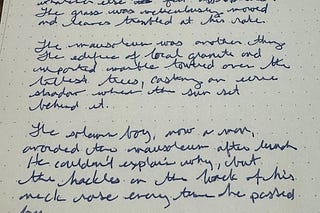 The grass was meticulously mowed
and leaves trembled at his rake.
The mausoleum was another thing
The edifice of local granite and
imported marble towered over the
tallest trees, casting an eerie
shadow when the sun set
behind it.
The solemn boy, now a man,
avoided the mausoleum after lunch
He couldn't explain why, but
the hackles on the back of his
neck rose every time he passed